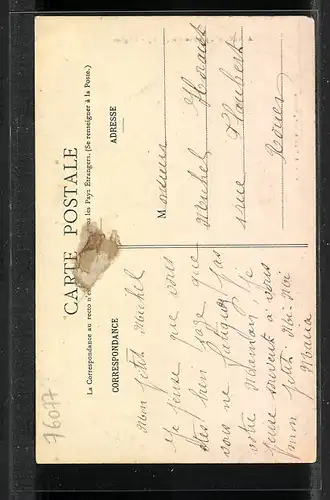 CARTE POSTALE
La Correspondance au recto n'e les Pays Étrangers. (Se renseigner à la Poste.)
CORRESPONDANCE
ADRESSE
Mon petit Michel
Je pense que vous
êtes bien sage que
vous ne fatiguez pas
votre maman, Je
pense souvent à vous
mon petit Mi-Mi
Maria
Monsieur
Michel
rue Flaubert
Rouen
76077